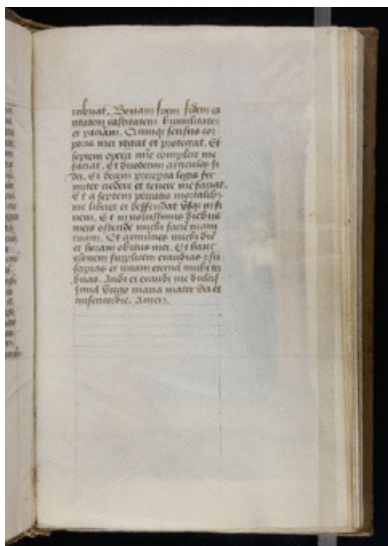 tribuat. Bonam spem fidem ca
ritatem castitatem humilitatem
et paciam. Quinqz sensus cor
poris mei regat et protegat. Et
septem opera mie complere me
faciat. Et duodecim articulos fi
dei. Et decem precepta legis fir
miter credere et tenere me faciat.
Et a septem peccatis mortalibz
me liberet et deffendat vsqz in fi
nem. Et in nouissimis diebus
meis ostende michi faciem tuam
tuam. Et annuncies michi diē
et horam obitus mei. Et hanc
oronem suplicem exaudias et sus
scipias et vitam eternā michi tri
buas. Audi et exaudi me dulcis
sima virgo maria mater dei et
misericordie. Amen.